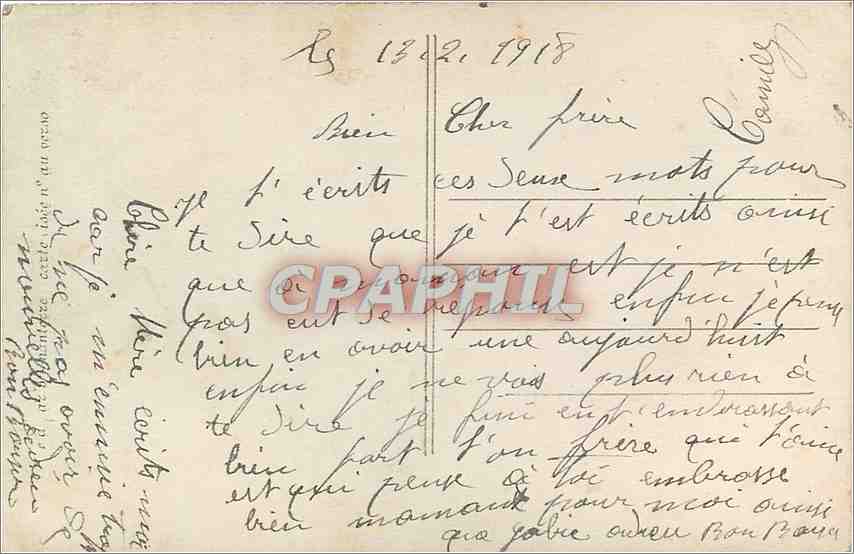 Le 13.2.1918
Camille
Bien Cher frère
Je t'écrits ces deux mots pour
te dire que je t'est écrits ainsi
que à maman est je n'est
pas eut de reponse enfin je pense
bien en avoir une aujourd'huit
enfin je ne vois plus rien à
te dire je fini ent t'embrassant
bien fort t'on frère qui t'aime
est qui pense à toi embrasse
bien maman pour moi ainsi
que adieu Bon Baiser
Chère frère ecrits moi
car je m'ennuie trop
de ne pas avoir de
nouvelles
Bon Baiser
CPAPHIL